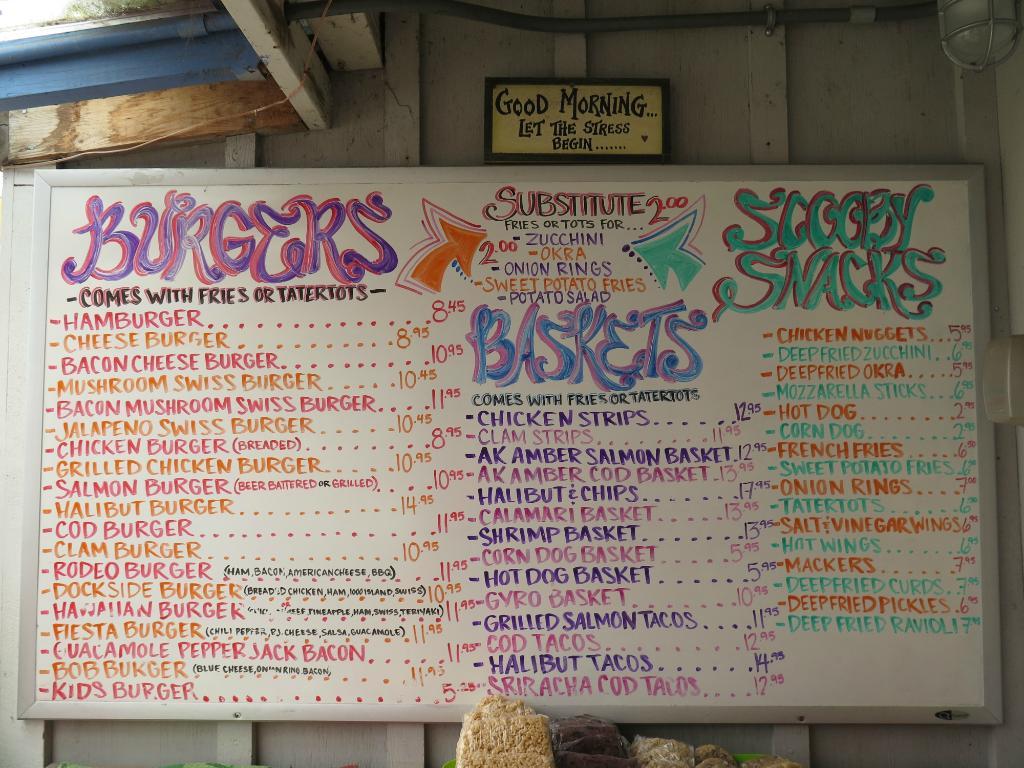 GOOD MORNING...
LET THE STRESS
BEGIN.......
BURGERS
-COMES WITH FRIES OR TATERTOTS-
-HAMBURGER 8.45
-CHEESE BURGER 8.95
-BACON CHEESE BURGER 10.95
-MUSHROOM SWISS BURGER 10.45
-BACON MUSHROOM SWISS BURGER 11.95
-JALAPENO SWISS BURGER 10.45
-CHICKEN BURGER (BREADED) 8.95
-GRILLED CHICKEN BURGER 10.95
-SALMON BURGER (BEER BATTERED OR GRILLED) 10.95
-HALIBUT BURGER 14.95
-COD BURGER 11.95
-CLAM BURGER 10.95
-RODEO BURGER (HAM, BACON, AMERICAN CHEESE, BBQ) 11.95
-DOCKSIDE BURGER (BREADED CHICKEN, HAM, 1000 ISLAND, SWISS) 10.95
-HAWAIIAN BURGER OR BEEF PINEAPPLE, HAM, SWISS, TERIYAKI) 11.95
-FIESTA BURGER (CHILI PEPPER, P.J. CHEESE, SALSA, GUACAMOLE) 11.95
-GUACAMOLE PEPPER JACK BACON 11.95
-BOB BURGER (BLUE CHEESE, ONION RING, BACON, 11.95
-KIDS BURGER
SUBSTITUTE 2.00
FRIES OR TOTS FOR...
2.00
-ZUCCHINI
-OKRA
-ONION RINGS
-SWEET POTATO FRIES
-POTATO SALAD
BASKETS
COMES WITH FRIES OR TATERTOTS
-CHICKEN STRIPS 12.95
-CLAM STRIPS 11.95
-AK AMBER SALMON BASKET 12.95
-AK AMBER COD BASKET 13.95
-HALIBUT & CHIPS 17.95
-CALAMARI BASKET 13.95
-SHRIMP BASKET 13.95
-CORN DOG BASKET 5.95
-HOT DOG BASKET 5.95
-GYRO BASKET 10.95
-GRILLED SALMON TACOS 11.95
-COD TACOS 12.95
-HALIBUT TACOS 14.95
-SRIRACHA COD TACOS 12.95
SCOOBY
SNACKS
-CHICKEN NUGGETS 5.95
-DEEPFRIED ZUCCHINI 6.95
-DEEPFRIED OKRA 5.95
-MOZZARELLA STICKS 6.95
-HOT DOG 2.95
-CORN DOG 2.95
-FRENCH FRIES 6.50
-SWEET POTATO FRIES
-ONION RINGS 7.00
-TATERTOTS
-SALT & VINEGAR WINGS 6.95
-HOT WINGS 6.95
-MACKERS 7.95
-DEEPFRIED CURDS 7.95
-DEEPFRIED PICKLES 6.95
-DEEP FRIED RAVIOLI 7.95